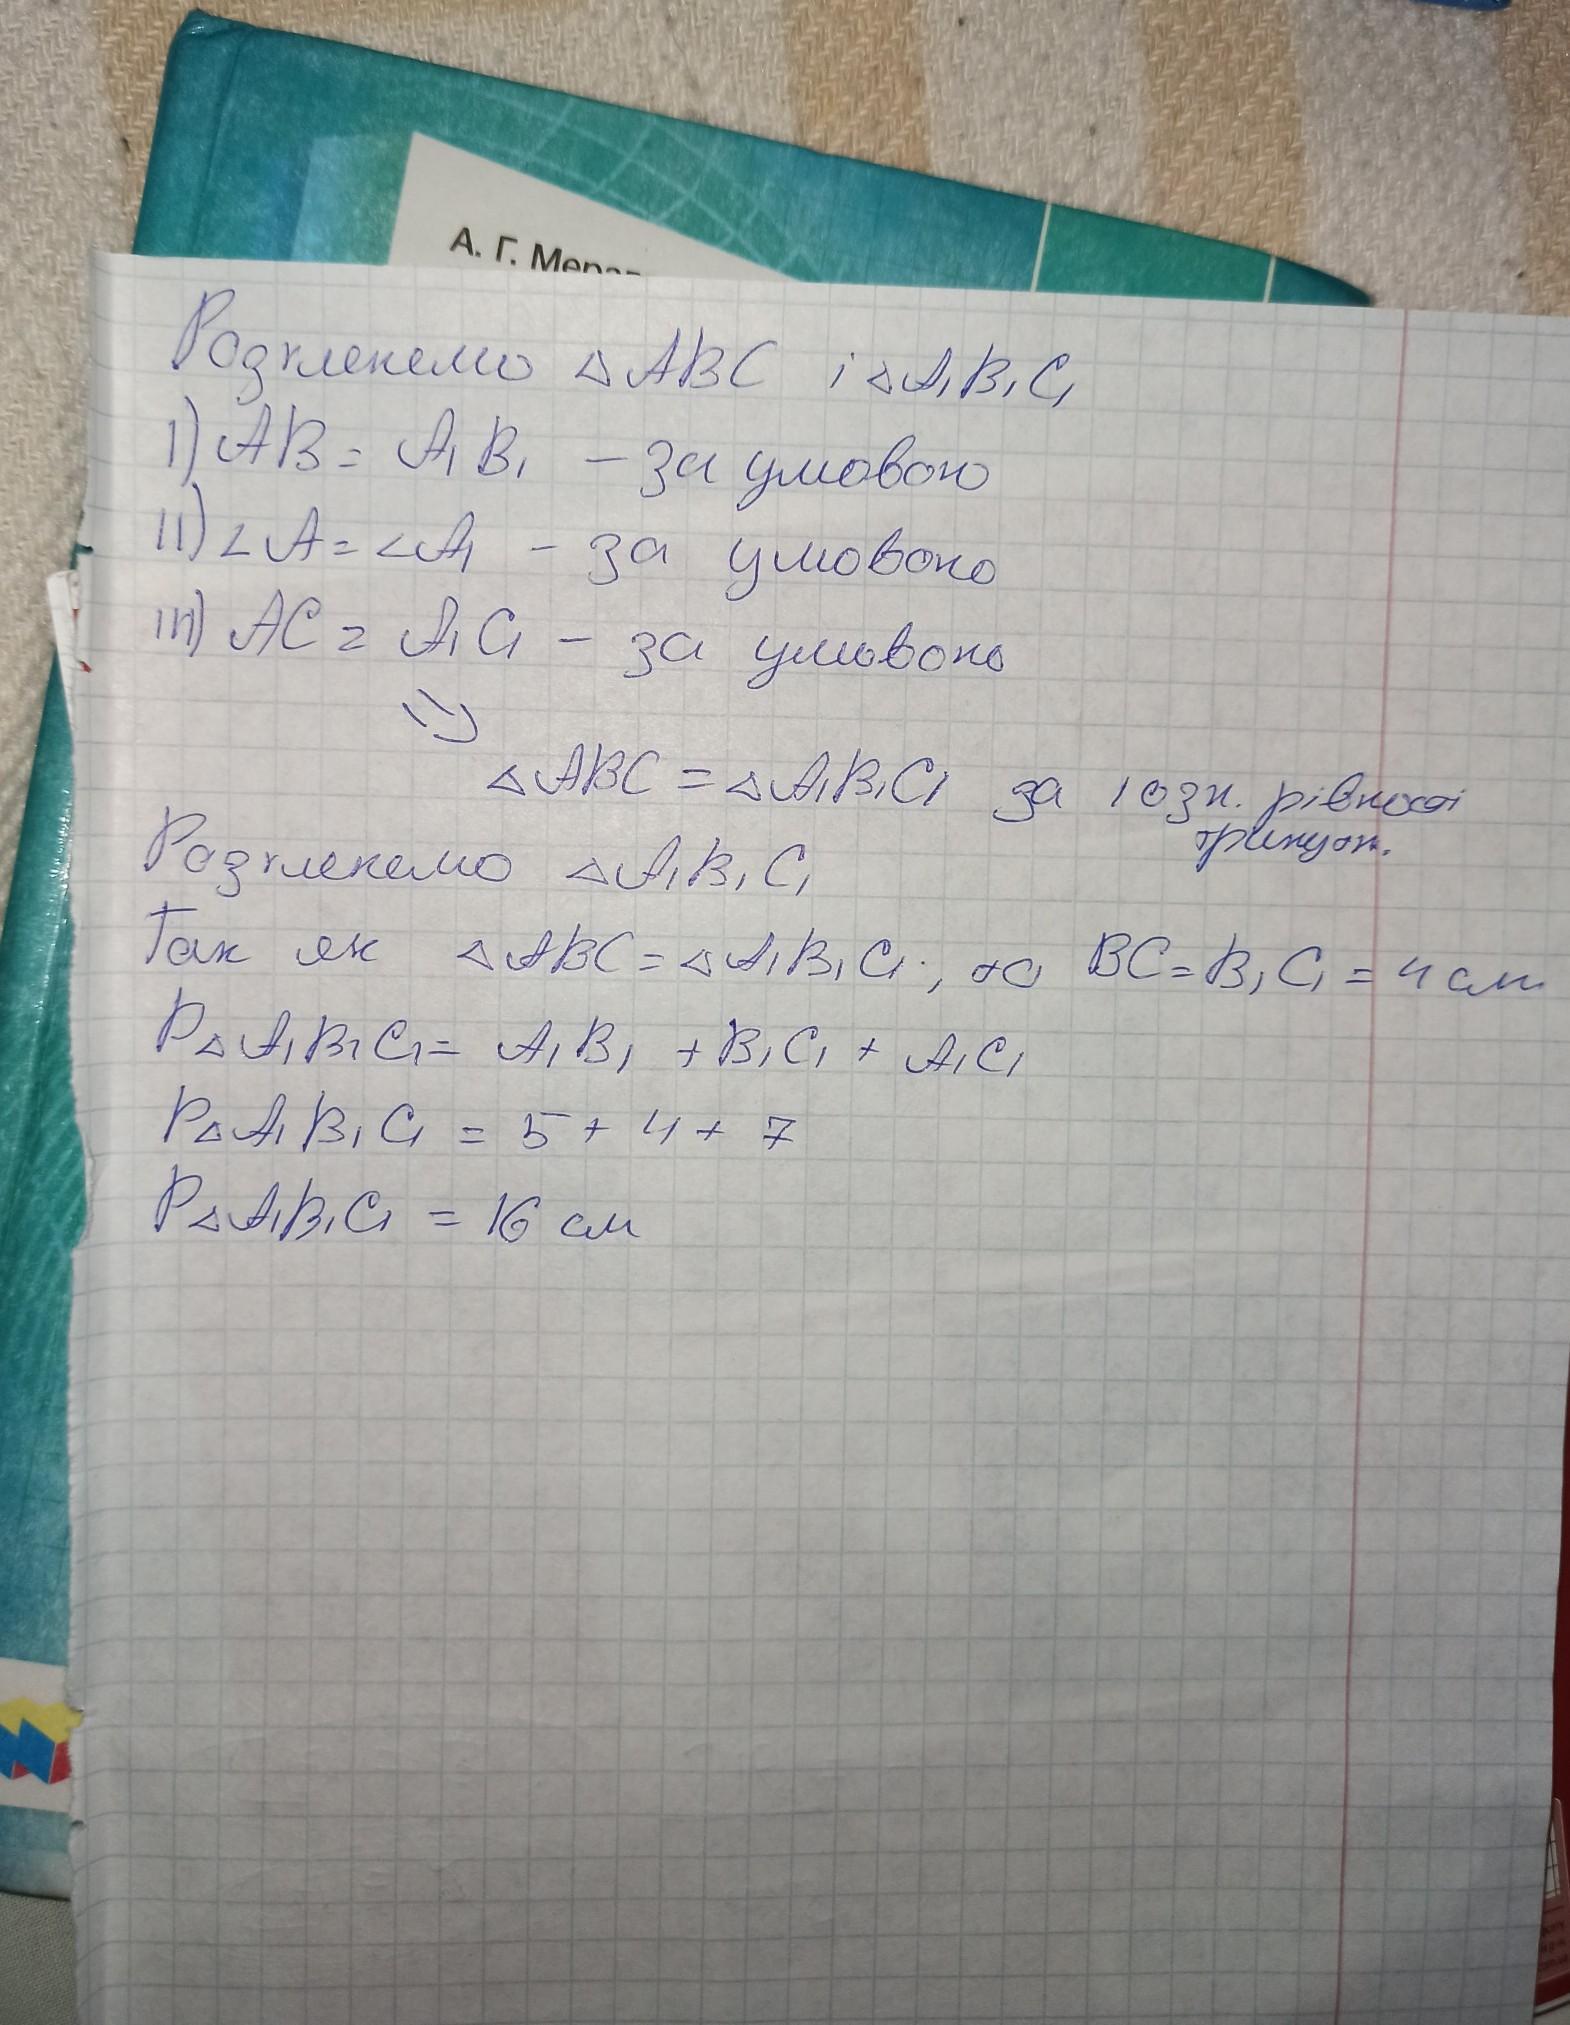 А. Г. Мерз
Розглянемо △ABC і △A₁B₁C₁
I) AB = A₁B₁ – за умовою
II) ∠A = ∠A₁ – за умовою
III) AC = A₁C₁ – за умовою
△ABC = △A₁B₁C₁ за I озн. рівності
трикут.
Розглянемо △A₁B₁C₁
Так як △ABC = △A₁B₁C₁, то BC = B₁C₁ = 4 см
P△A₁B₁C₁ = A₁B₁ + B₁C₁ + A₁C₁
P△A₁B₁C₁ = 5 + 4 + 7
P△A₁B₁C₁ = 16 см